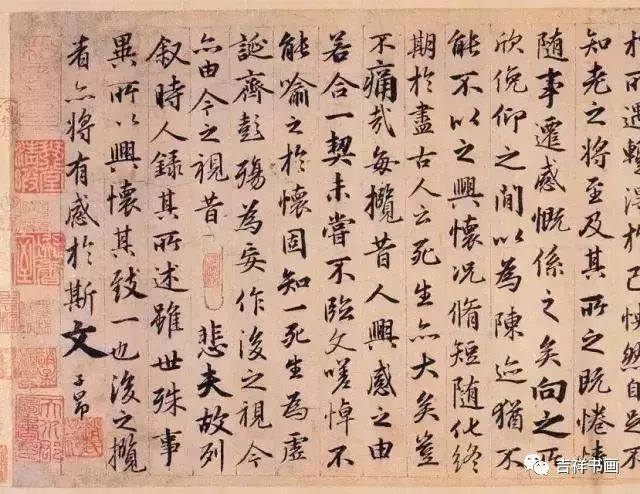 於所遇輒得於己快然自足不
知老之將至及其所之既惓情
随事遷感慨係之矣向之所
欣俛仰之間以為陳迹猶不
能不以之興懷况脩短随化終
期於盡古人云死生亦大矣豈
不痛哉每攬昔人興感之由
若合一契未嘗不臨文嗟悼不
能喻之於懷固知一死生為虛
誕齊彭殤為妄作後之視今
亦由今之視昔 悲夫故列
叙時人録其所述雖世殊事
異所以興懷其致一也後之攬
者亦将有感於斯文 子昂
吉祥书画